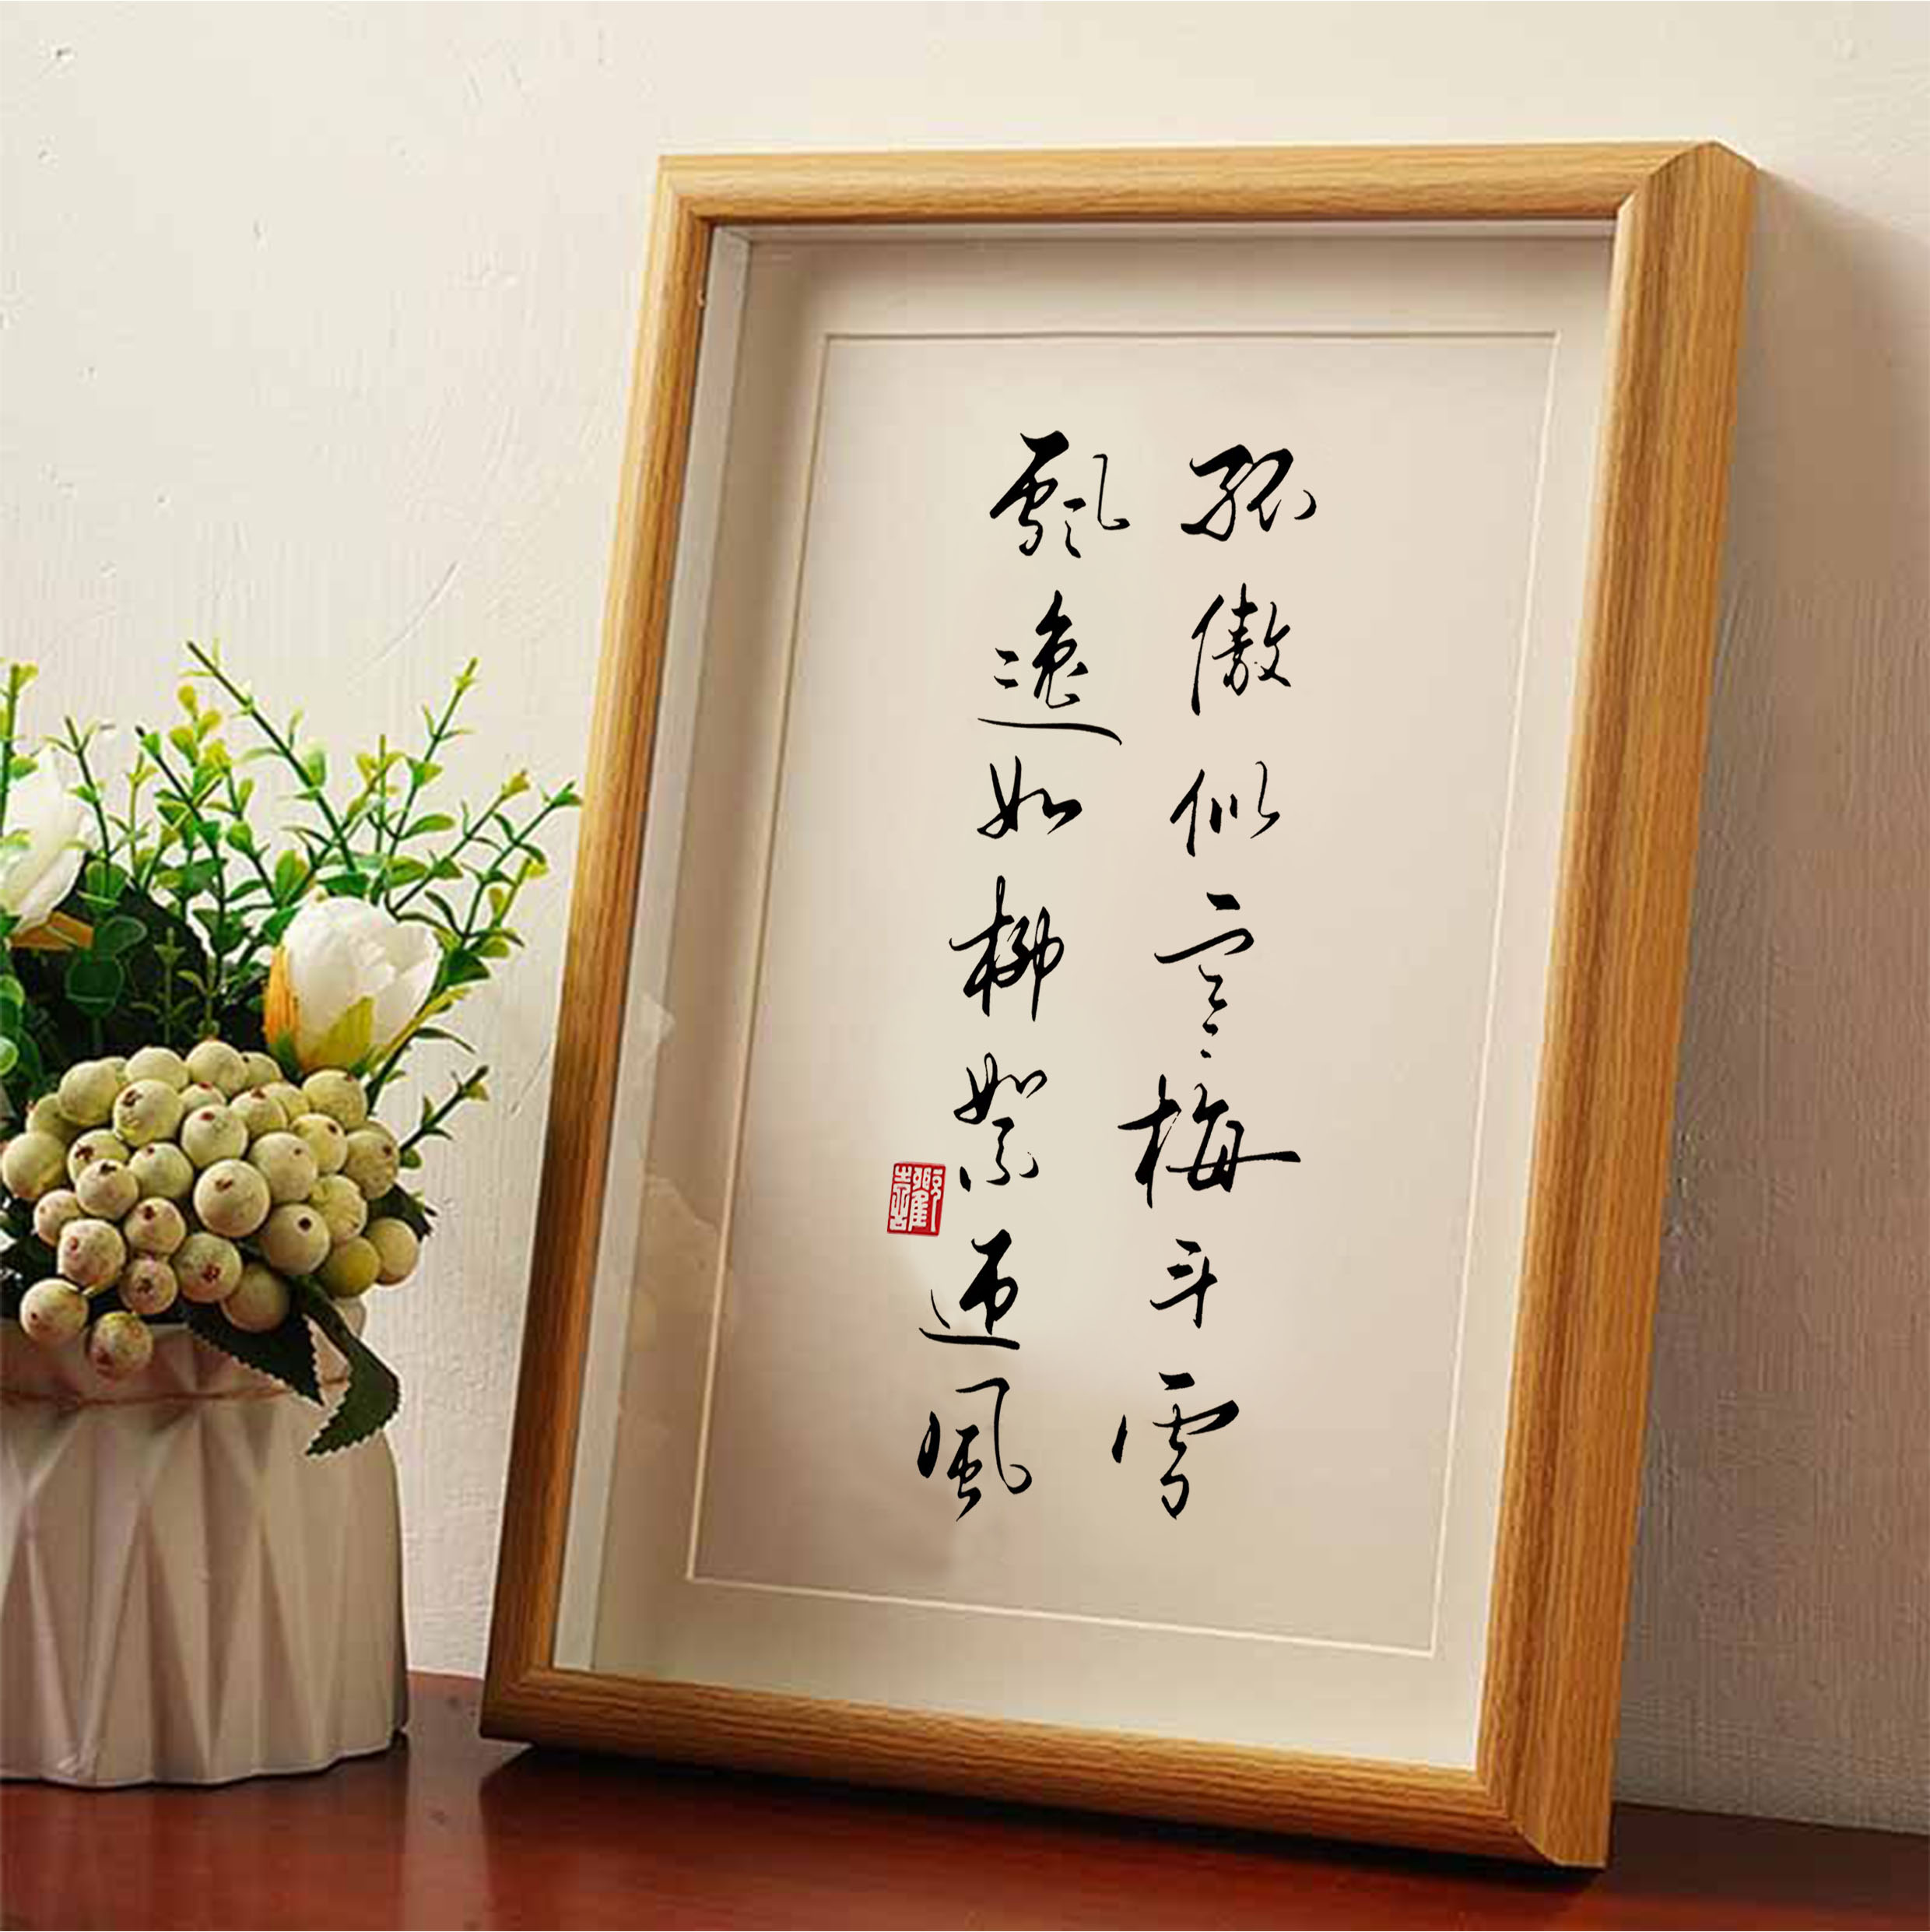 孤傲似寒梅斗雪
飄逸如柳絮迎風